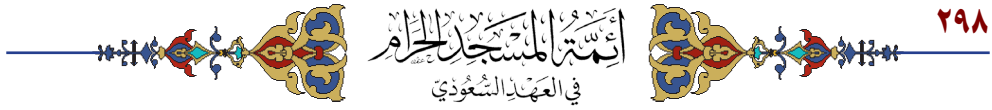 ٢٩٨
أَئِمَّةُ الْمَسْجِدِ الْحَرَامِ
فِي الْعَهْدِ السُّعُودِيِّ